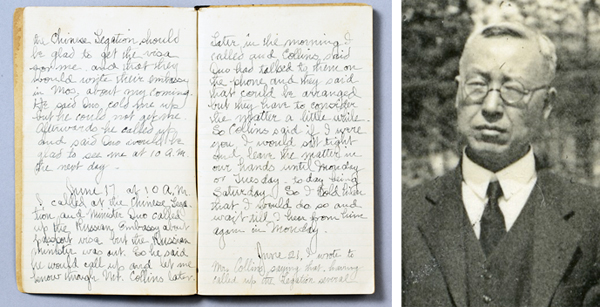 the Chinese Legation should
be glad to get the visa
for me and that they
would write their embassy
in Mos, about my coming.
He said Quo called me up
but he could not get me.
Afterwards he called up
and said Quo would be
glad to see me at 10 A.M.
the next day.
June 17 at 10 A.M.
I called at the Chinese Lega-
tion and Minister Quo called
up the Russian Embassy about
passport visa but the Russian
minister was out. So he said
he would call up and let me
know through Mr. Collins later.
Later in the morning I
called and Collins said
Quo had talked to them on
the phone and they said
that could be arranged
but they have to consider
the matter a little while.
So Collins said if I were
you I would sit tight
and leave the matter in
our hands until Monday
or Tuesday, today being
Saturday. So I told him
that I would do so and
wait till I hear from him
again in Monday.
June 21, I wrote to
Mr. Collins, saying that, having
called up the Legation several